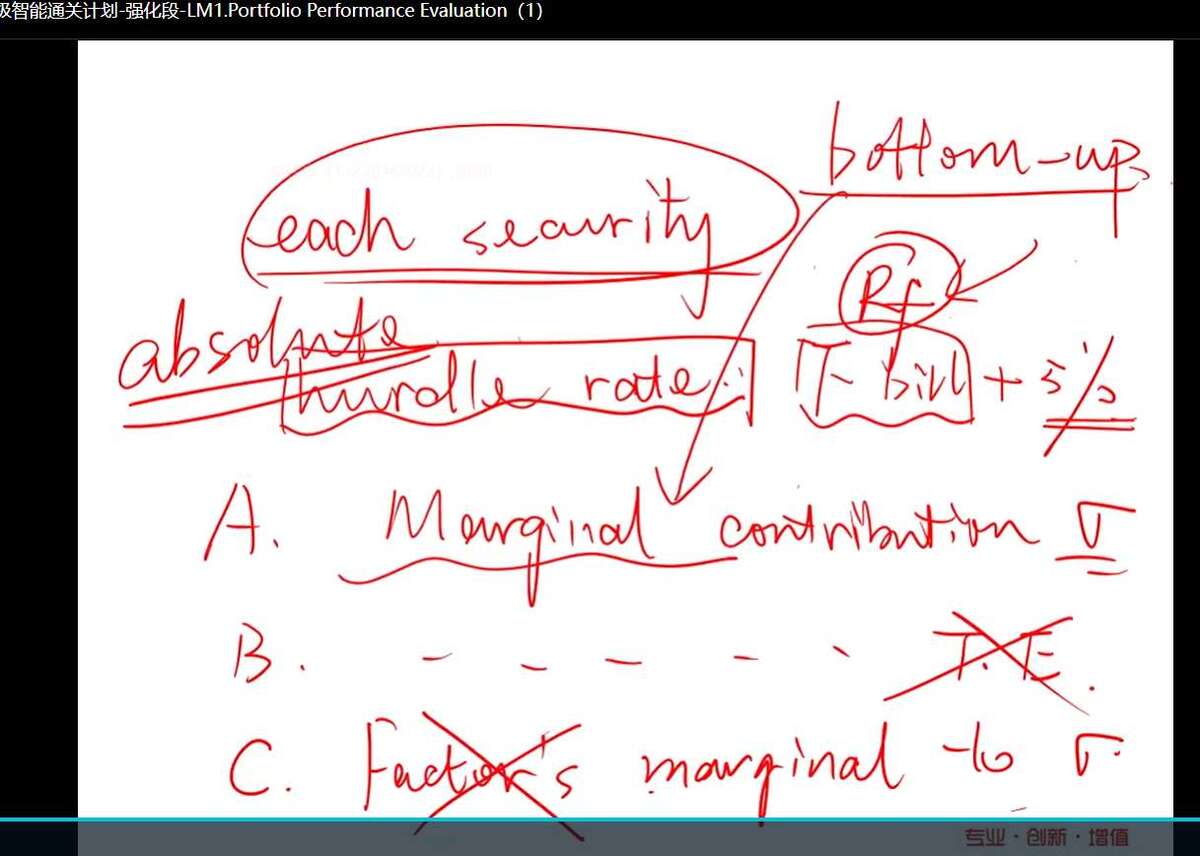 级智能通关计划-强化段-LM1.Portfolio Performance Evaluation（1）
bottom-up
each security
Rf
absolute
hurdle rate: T-bill + 5%
A. Marginal contribution σ
B. - - - - - T.E.
C. Factor's marginal to σ.
专业·创新·增值